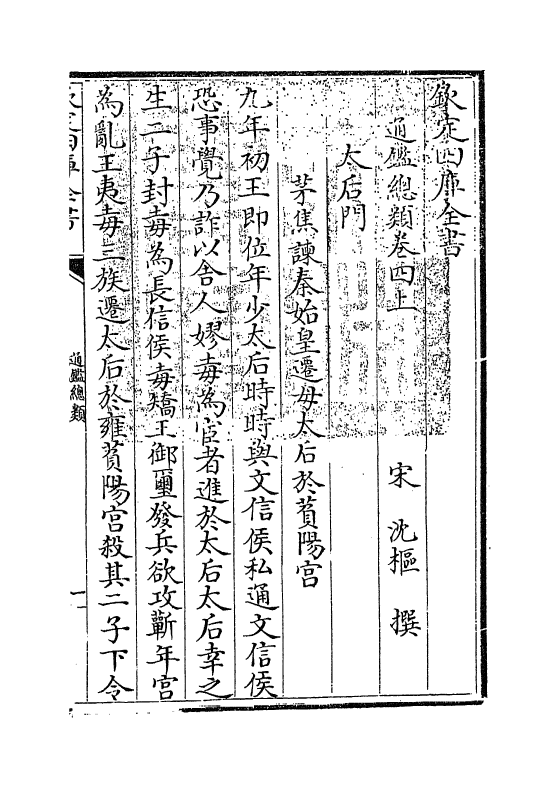 欽定四庫全書
通鑑總類卷四上
宋 沈樞 撰
太后門
茅焦諫秦始皇遷母太后於萯陽宫
九年初王即位年少太后時時與文信侯私通文信侯
恐事覺乃詐以舍人嫪毐為宦者進於太后太后幸之
生二子封毐為長信侯毐矯王御璽發兵欲攻蘄年宮
為亂王夷毐三族遷太后於雍萯陽宫殺其二子下令
欽定四庫全書
通鑑總類
一